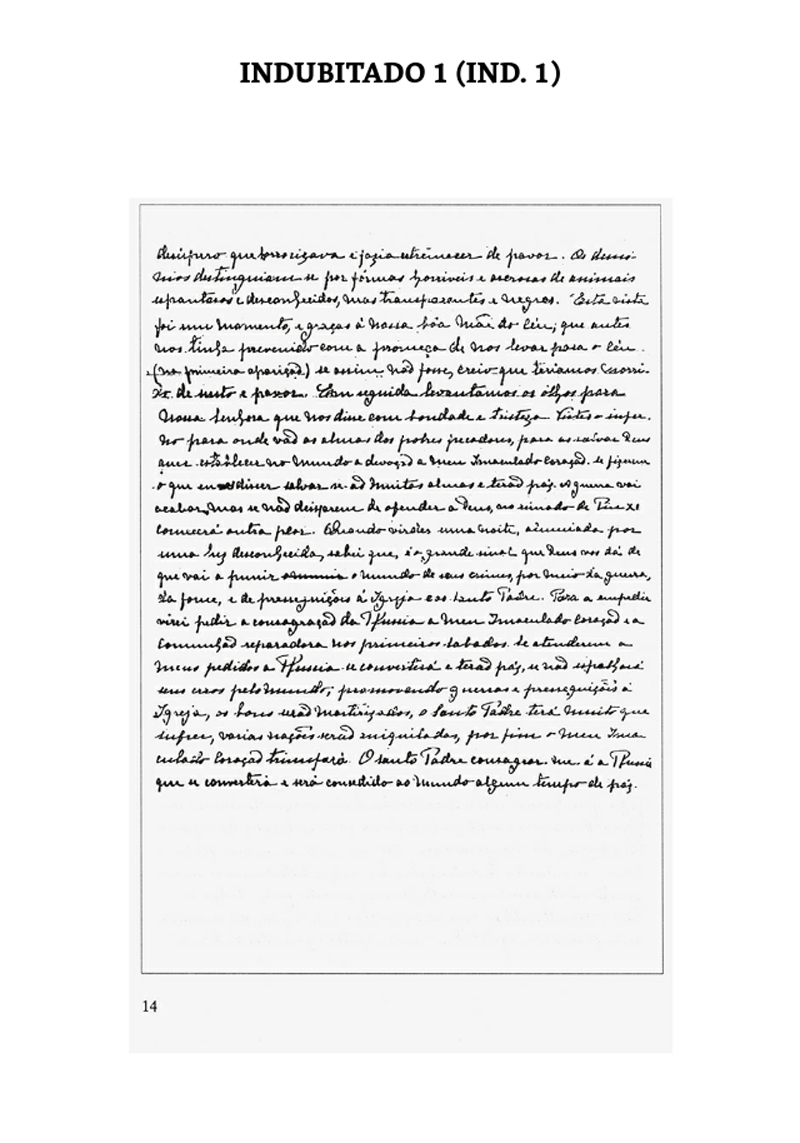 INDUBITADO 1 (IND. 1)
desispero que horrorizava e fazia estremecer de pavor. Os demo-
nios destinguiam-se por fórmas horriveis e acrosas de animais
espantosos e desconhecidos, mas transparentes e negros. Esta vista
foi um momento, e graças á nossa bôa Mãi do Céu; que antes
nos tinha prevenido com a promeça de nos levar para o Céu
(na primeira aparição) se assim não fosse, creio que teriamos morri-
do de susto e pavor. Em seguida levantamos os olhos para
Nossa Senhora que nos disse com bondade e tristeza Vistes o infer-
no para onde vão as almas dos pobres pecadores, para as salvar Deus
quer establecer no mundo a devoção a meu Imaculado Coração. se fizerem
o que eu disser salvar-se-ão muitas almas e terão páz. A guerra vai
acabar, mas se não deixarem de ofender a Deus, no reinado de Pio XI
comecará outra peor. Quando virdes uma noite, alumiada por
uma luz desconhecida, sabei que, é o grande sinal que Deus vos dá de
que vai a punir o mundo de seus crimes, por meio da guerra,
da fome, e de perseguições á Igreja e ao Santo Padre. Para a empedir
virei pedir a consagração da Russia a meu Imaculado Coração e a
Comunhão reparadora nos primeiros sabados. Se atenderem a
meus pedidos a Russia se converterá e terão páz, se não espalhará
seus erros pelo mundo; promovendo guerras e perseguições á
Igreja, os bons serão martirizados, o Santo Padre terá muito que
sufrer, varias nações serão aniquiladas, por fim o meu Ima-
culado Coração triunfará. O Santo Padre consagrar-me-á a Russia
que se converterá e será consedido ao mundo algum tempo de páz.
14